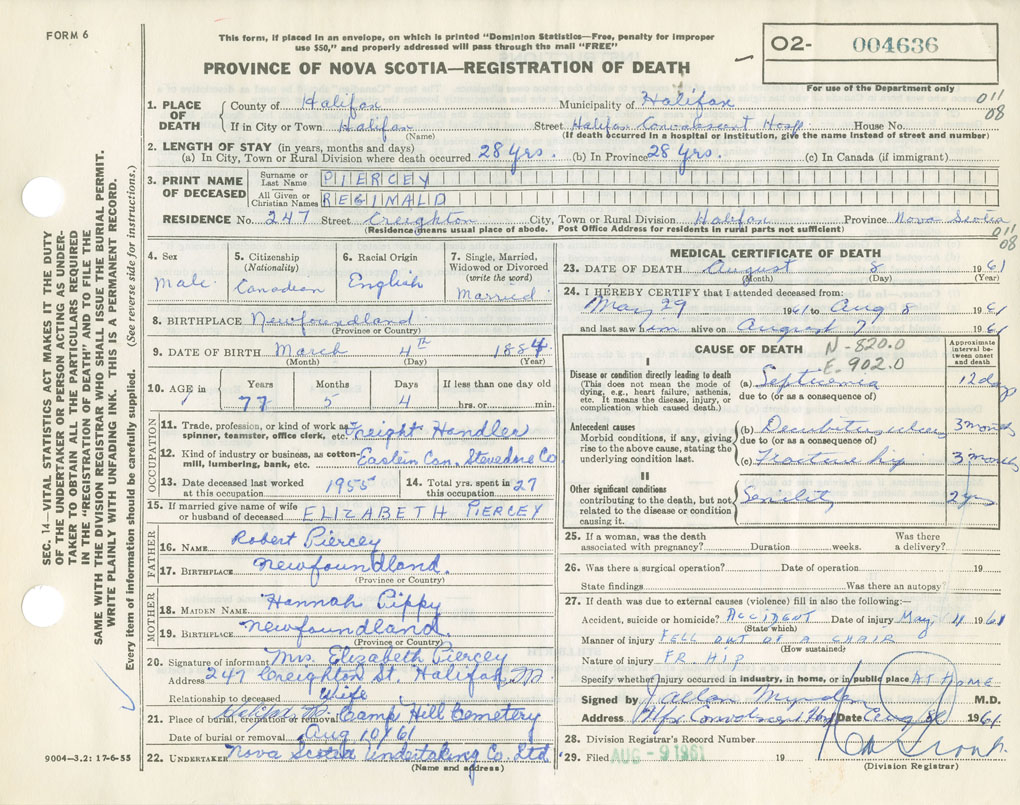 FORM 6
This form, if placed in an envelope, on which is printed "Dominion Statistics—Free, penalty for improper
use $50," and properly addressed will pass through the mail "FREE"
O2- 004636
PROVINCE OF NOVA SCOTIA—REGISTRATION OF DEATH
For use of the Department only
1. PLACE OF DEATH
County of Halifax Municipality of Halifax 011
If in City or Town Halifax Street Halifax Convalescent Hosp. House No. 08
(Name) (If death occurred in a hospital or institution, give the name instead of street and number)
2. LENGTH OF STAY (in years, months and days)
(a) In City, Town or Rural Division where death occurred 28 yrs. (b) In Province 28 yrs. (c) In Canada (if immigrant)
3. PRINT NAME OF DECEASED
Surname or Last Name PIERCEY
All Given or Christian Names REGINALD
RESIDENCE No. 247 Street Creighton City, Town or Rural Division Halifax Province Nova Scotia
(Residence means usual place of abode. Post Office Address for residents in rural parts not sufficient)
011
08
4. Sex Male
5. Citizenship (Nationality) Canadian
6. Racial Origin English
7. Single, Married, Widowed or Divorced (write the word) Married
8. BIRTHPLACE Newfoundland
(Province or Country)
9. DATE OF BIRTH March 4th 1884
(Month) (Day) (Year)
10. AGE in Years Months Days If less than one day old
77 5 4 hrs. or min.
OCCUPATION
11. Trade, profession, or kind of work as spinner, teamster, office clerk, etc. Freight Handler
12. Kind of industry or business, as cotton-mill, lumbering, bank, etc. Eastern Can. Stevedoring Co
13. Date deceased last worked at this occupation 1955
14. Total yrs. spent in this occupation 27
15. If married give name of wife or husband of deceased ELIZABETH PIERCEY
FATHER
16. NAME Robert Piercey
17. BIRTHPLACE Newfoundland.
(Province or Country)
MOTHER
18. MAIDEN NAME Hannah Pippy
19. BIRTHPLACE Newfoundland.
(Province or Country)
20. Signature of informant Mrs. Elizabeth Piercey
Address 247 Creighton St. Halifax,
Relationship to deceased Wife
21. Place of burial, cremation or removal Camp Hill Cemetery
Date of burial or removal Aug 10/61
22. UNDERTAKER Nova Scotia Undertaking Co. Ltd
(Name and address)
MEDICAL CERTIFICATE OF DEATH
23. DATE OF DEATH August 8 1961
(Month) (Day) (Year)
24. I HEREBY CERTIFY that I attended deceased from:
May 29 1961 to Aug 8 1961
and last saw him alive on August 7 1961
CAUSE OF DEATH N-820.0
E-902.0
Approximate interval between onset and death
I
Disease or condition directly leading to death
(This does not mean the mode of dying, e.g., heart failure, asthenia, etc. It means the disease, injury, or complication which caused death.)
(a) Septicemia 12 days
due to (or as a consequence of)
Antecedent causes
Morbid conditions, if any, giving rise to the above cause, stating the underlying condition last.
(b) Decubitus ulcers 3 months
due to (or as a consequence of)
(c) Fracture hip 3 months
II
Other significant conditions
contributing to the death, but not related to the disease or condition causing it.
Senility 2 yrs
25. If a woman, was the death associated with pregnancy? Duration weeks. Was there a delivery?
26. Was there a surgical operation? Date of operation 19
State findings Was there an autopsy?
27. If death was due to external causes (violence) fill in also the following:—
Accident, suicide or homicide? ACCIDENT Date of injury May 11 1961
(State which)
Manner of injury FELL OUT OF A CHAIR
(How sustained)
Nature of injury FR HIP
Specify whether injury occurred in industry, in home, or in public place AT HOME
Signed by J Allan M.D.
Address Hfx Convalescent Hosp Date Aug 8 1961.
28. Division Registrar's Record Number
29. Filed AUG - 9 1961 19
(Division Registrar)
SEC. 14—VITAL STATISTICS ACT MAKES IT THE DUTY
OF THE UNDERTAKER OR PERSON ACTING AS UNDER-
TAKER TO OBTAIN ALL THE PARTICULARS REQUIRED
IN THE "REGISTRATION OF DEATH" AND TO FILE THE
SAME WITH THE DIVISION REGISTRAR WHO SHALL ISSUE THE BURIAL PERMIT.
WRITE PLAINLY WITH UNFADING INK. THIS IS A PERMANENT RECORD.
Every item of information should be carefully supplied. (See reverse side for instructions.)
9004—3.2: 17-6-55